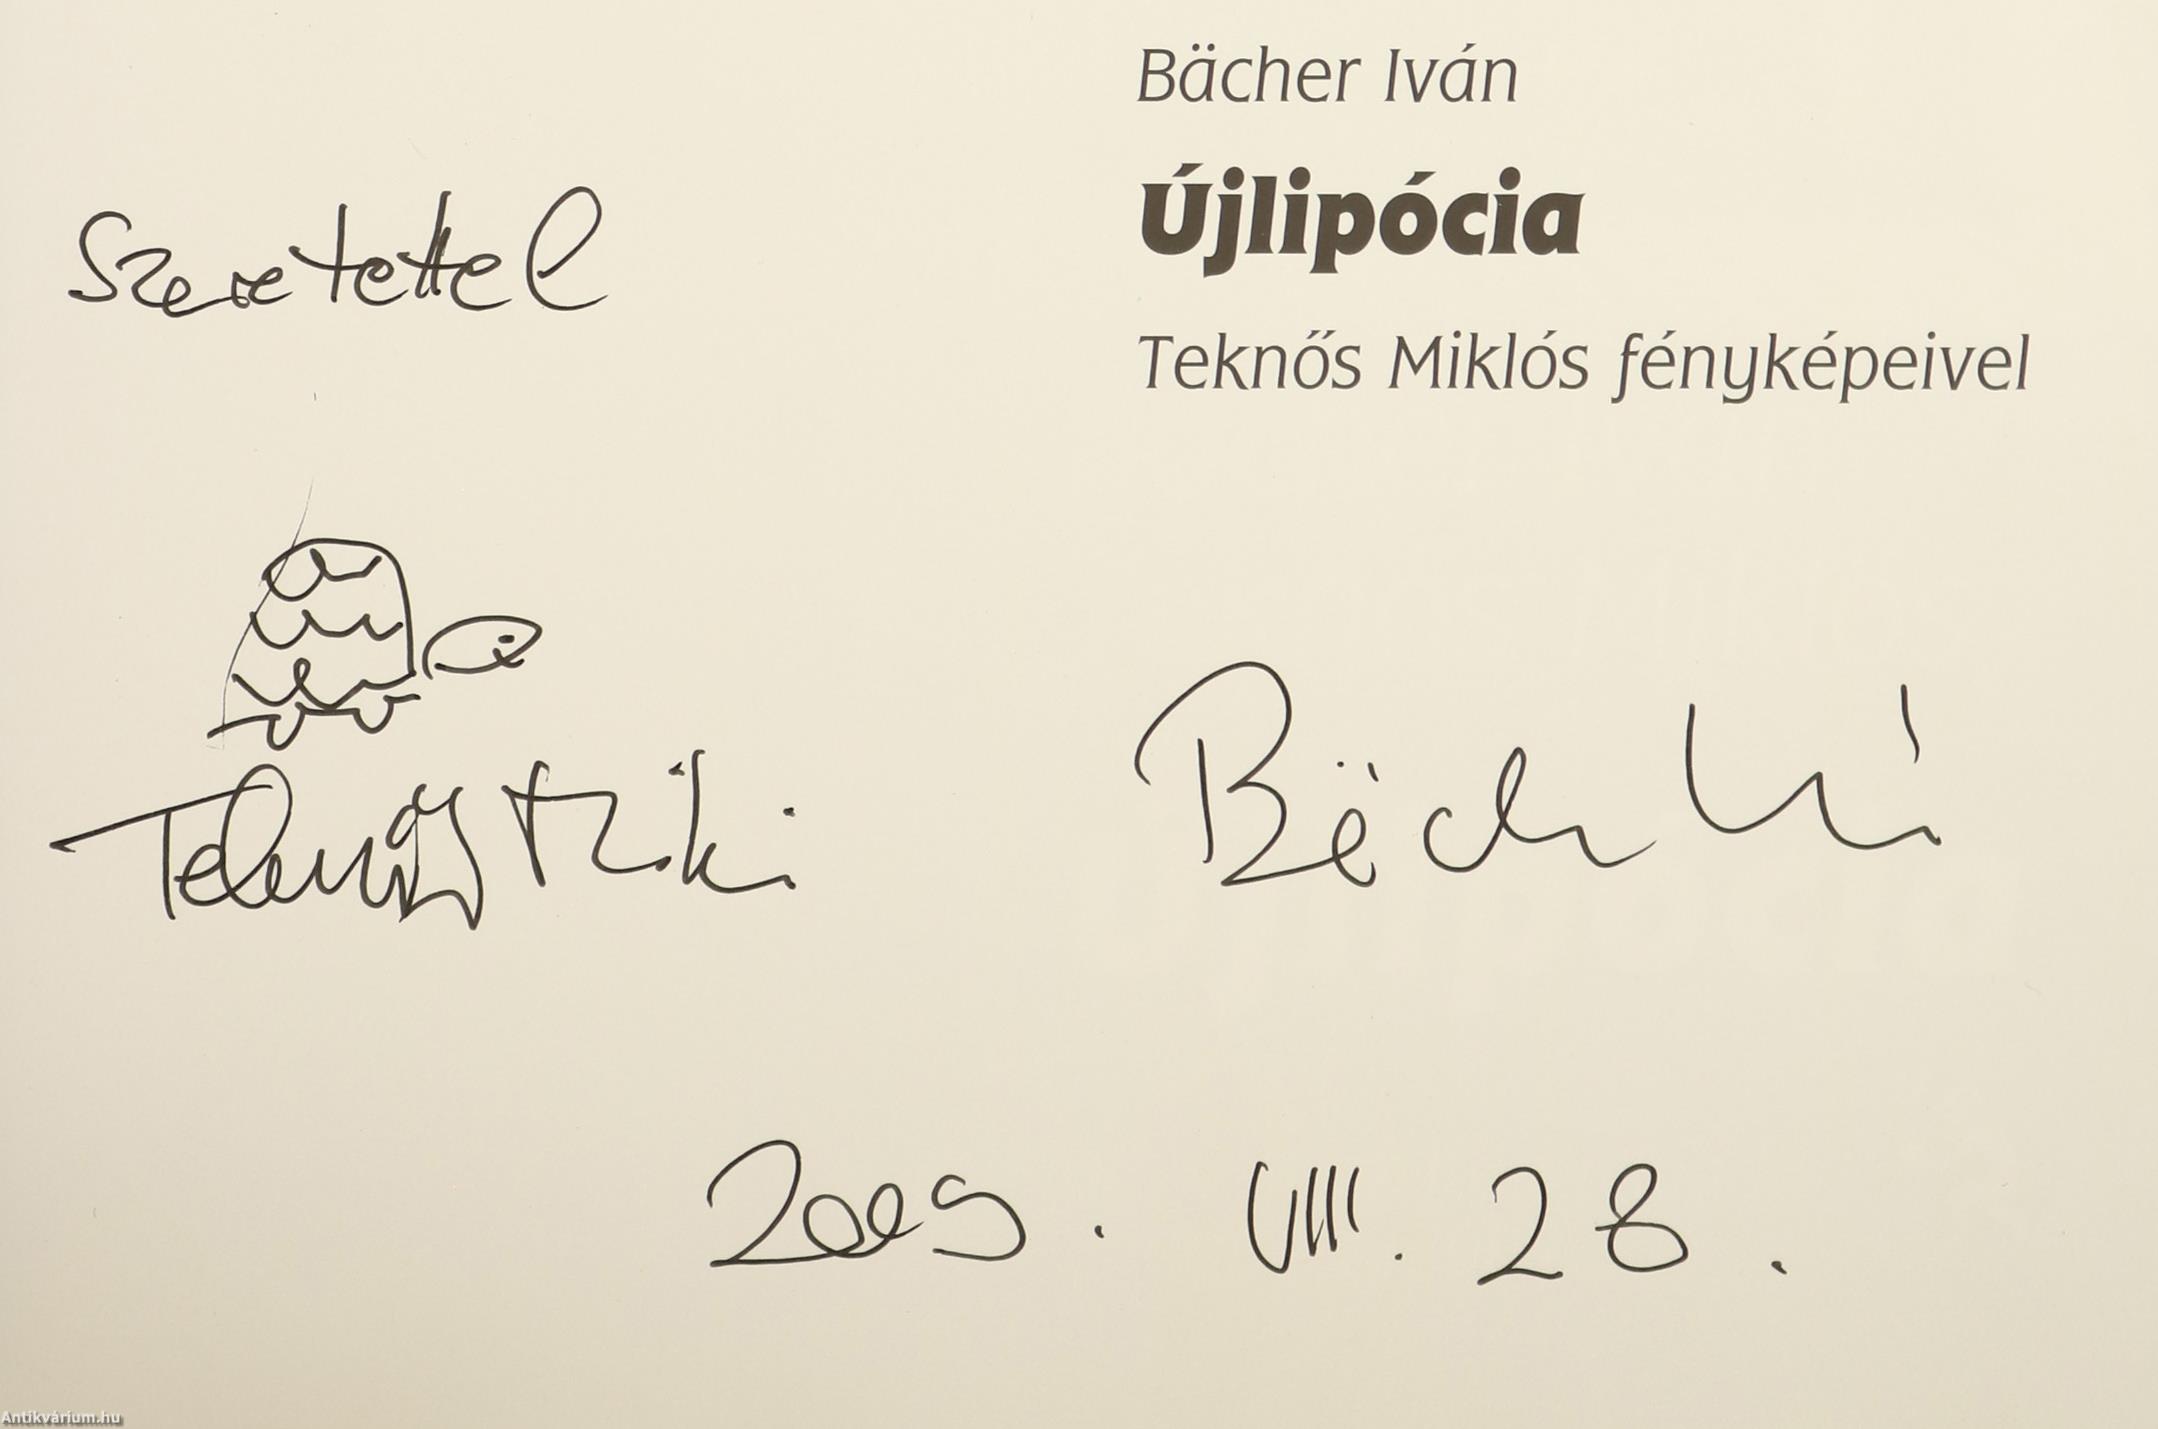 Bächer Iván
Újlipócia
Teknős Miklós fényképeivel
Szeretettel
Teknős Miki
Bächer Iván
2009. VIII. 28.
Antikvárium.hu